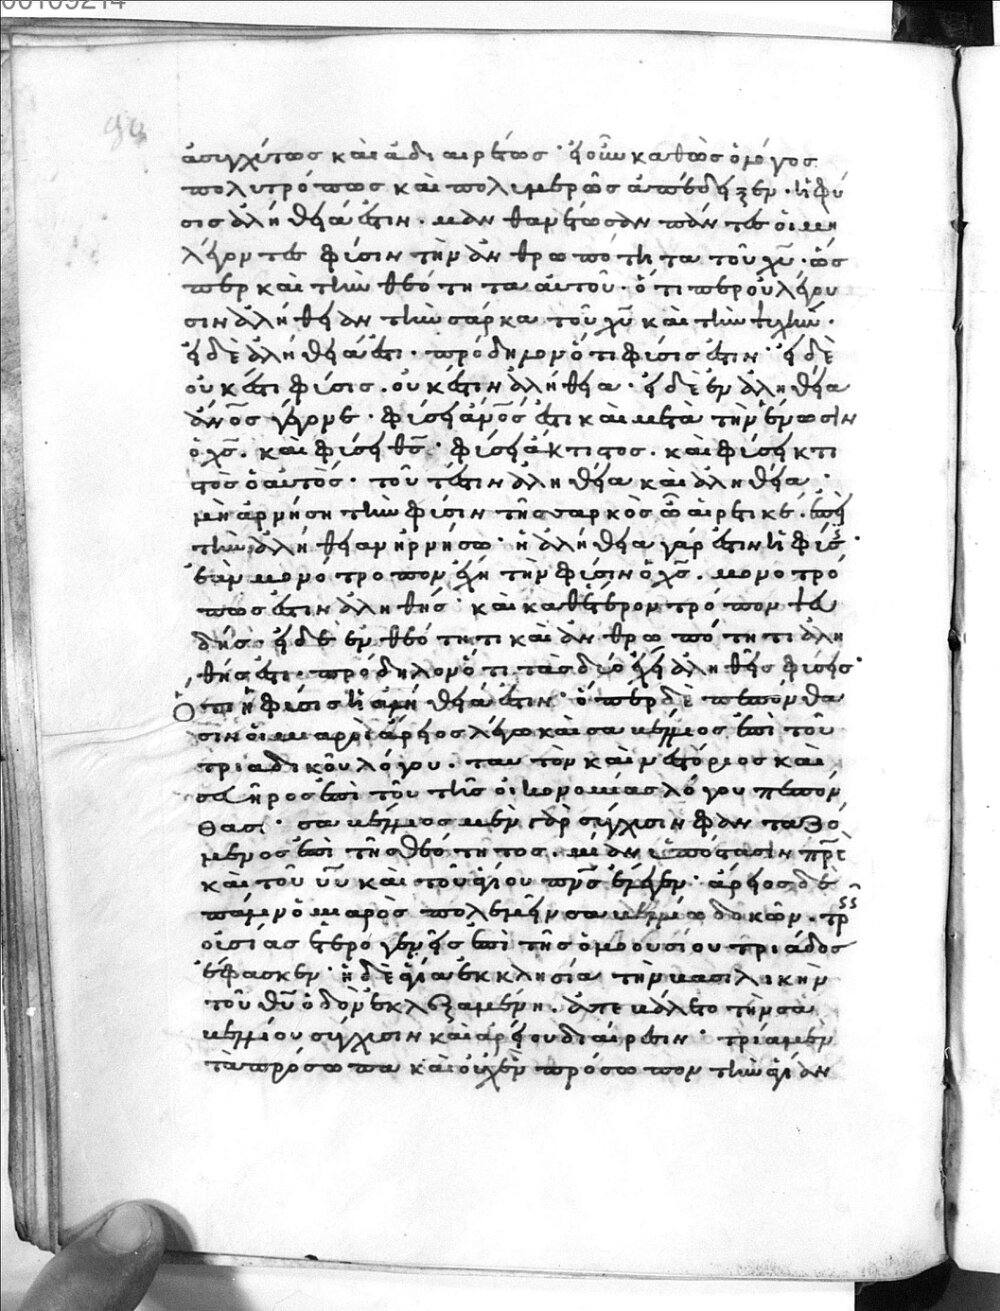 00109214
ἀσιγχύτως καὶ ἀδιαιρέτως · ἡ οὖν καθὼς ὁ λόγος
πολυτρόπως καὶ πολυμερῶς ἀπέδηξεν · ἡ φύ
σις ἀληθηά ἐστιν · μανθανέτωσαν πάντες οἱ μὴ
λέγοντες φύσιν τὴν ἀνθρωπότητα τοῦ χ̅υ̅ · ὥσ
περ καὶ τὴν θεότητα αὐτοῦ · ὅτιπερ οὐ λέγου
σιν ἀληθῆ ἂν τὴν σάρκα τοῦ χ̅υ̅ καὶ τὴν ψυχήν ·
ἡ δὲ ἀληθηά ἐστι · πρόδηλον ὅτι φύσις ἐστιν · ἡ δὲ
οὐκ ἔστι φύσις · οὐκ ἔστιν ἀλήθηα · ἡ δὲ ἐν ἀληθήα
ἄν̅ο̅ς γέγονε · φύση ἄν̅ο̅ς ἐστι καὶ μετὰ τὴν ἕνωσιν
ὁ χ̅ς̅ · καὶ φύση θ̅ς̅ · φύση ἄκτιστος · καὶ φύση κτι
στὸς ὁ αὐτός · τοῦτέστιν ἀληθήα καὶ ἀληθήα ·
μὴ ἀρνήση τὴν φύσιν τῆς σαρκὸς ὦ αἱρετικέ · ἐπὴ
τὴν ἀλήθηαν ἠρνήσω · ἡ ἀλήθηα γάρ ἐστιν ἡ φύσις ·
ἐὰν μονότροπον ἔχη τὴν φύσιν ὁ χ̅ς̅ · μονοτρό
πως ἐστιν ἀληθής · καὶ καθέτερον τρόπον ψευ
δής · ἡ δὲ ἐν θεότητι καὶ ἀνθρωπότητι ἀλη
θής ἐστι · πρόδηλον ὅτι τὰς δύο ἔχη ἀληθῆς φύσης ·
Ὅτι ἡ φύσις ἡ ἀλήθηά ἐστιν · ὅπερ δὲ πεπόνθα
σιν οἱ μιαροὶ ἄρηος λέγω καὶ σαβέλλιος ἐπὶ τοῦ
τριαδικοῦ λόγου · ταυτὸν καὶ νεστόριος καὶ
σευῆρος ἐπὶ τοῦ τῆς οἰκονομίας λόγου πεπόν
θασι · σαβέλλιος μὲν γὰρ σύγχισιν φανταζό
μενος ἐπὶ τῆς θεότητος · μίαν ὑπόστασιν π̅ρ̅ς̅
καὶ τοῦ υ̅υ̅ καὶ τοῦ ἁγίου πν̅ς̅ ἔλεγεν · ἄρηος δὲ
πάλιν ὁ μιαρὸς πολεμῆν σαβελλίω δοκῶν · τρεῖς
οὐσίας ἑτερογενῆς ἐπὶ τῆς ὁμοουσίου τριάδος
ἔφασκεν · ἡ δὲ ἁγία ἐκκλησία τὴν βασιλικὴν
τοῦ θ̅υ̅ ὁδὸν ἐκλεξαμένη · ἀπεβάλετο τὴν σα
βελλίου σύγχισιν καὶ ἀρήου διαίρεσιν · τρία μὲν
τὰ πρόσωπα καὶ οὐχ ἓν πρόσωπον τὴν ἁγίαν